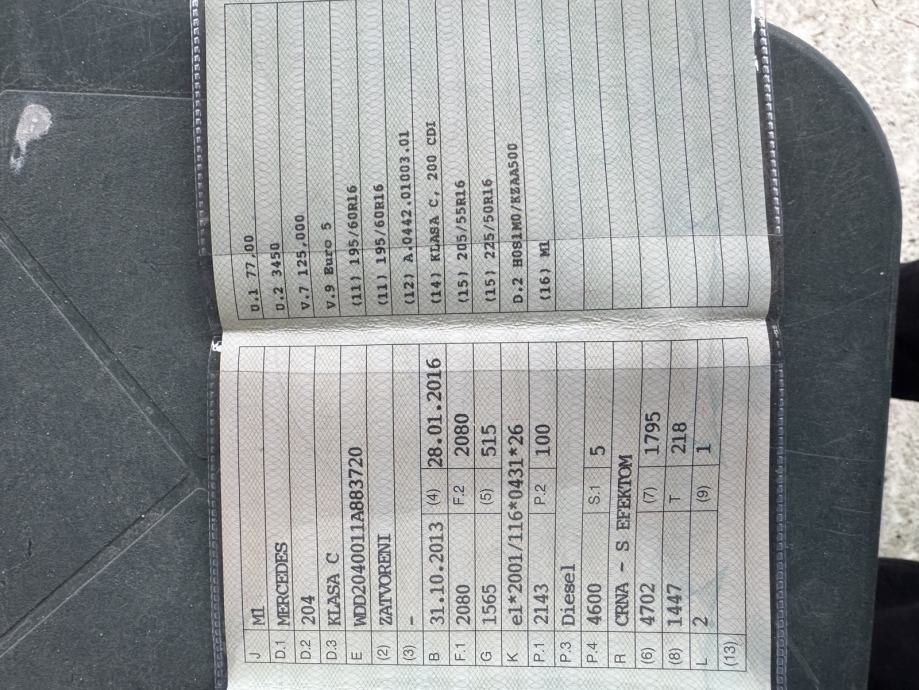 J M1
D.1 MERCEDES
D.2 204
D.3 KLASA C
E WDD2040011A883720
(2) ZATVORENI
(3) -
B 31.10.2013 (4) 28.01.2016
F.1 2080 F.2 2080
G 1565 (5) 515
K e1*2001/116*0431*26
P.1 2143 P.2 100
P.3 Diesel
P.4 4600 S.1 5
R CRNA - S EFEKTOM
(6) 4702 (7) 1795
(8) 1447 T 218
L 2 (9) 1
(13)
U.1 77,00
U.2 3450
V.7 125,000
V.9 Euro 5
(11) 195/60R16
(11) 195/60R16
(12) A.0442.01003.01
(14) KLASA C, 200 CDI
(15) 205/55R16
(15) 225/50R16
D.2 H0S1M0/KZAA500
(16) M1